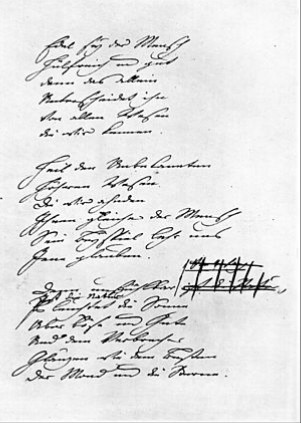 Edel sey der Mensch
Hülfreich und gut
denn das allein
Unterscheidet ihn
Von allen Wesen
die wir kennen.
Heil den Unbekannten
Höhern Wesen
Die wir ahnden
Ihnen gleiche der Mensch
Sein Beyspiel lehr uns
Jene glauben.
Natur
Es leuchtet die Sonne
Über Böse und Gute
Und dem Verbrecher
Glänzen wie dem Besten
Der Mond und die Sterne.